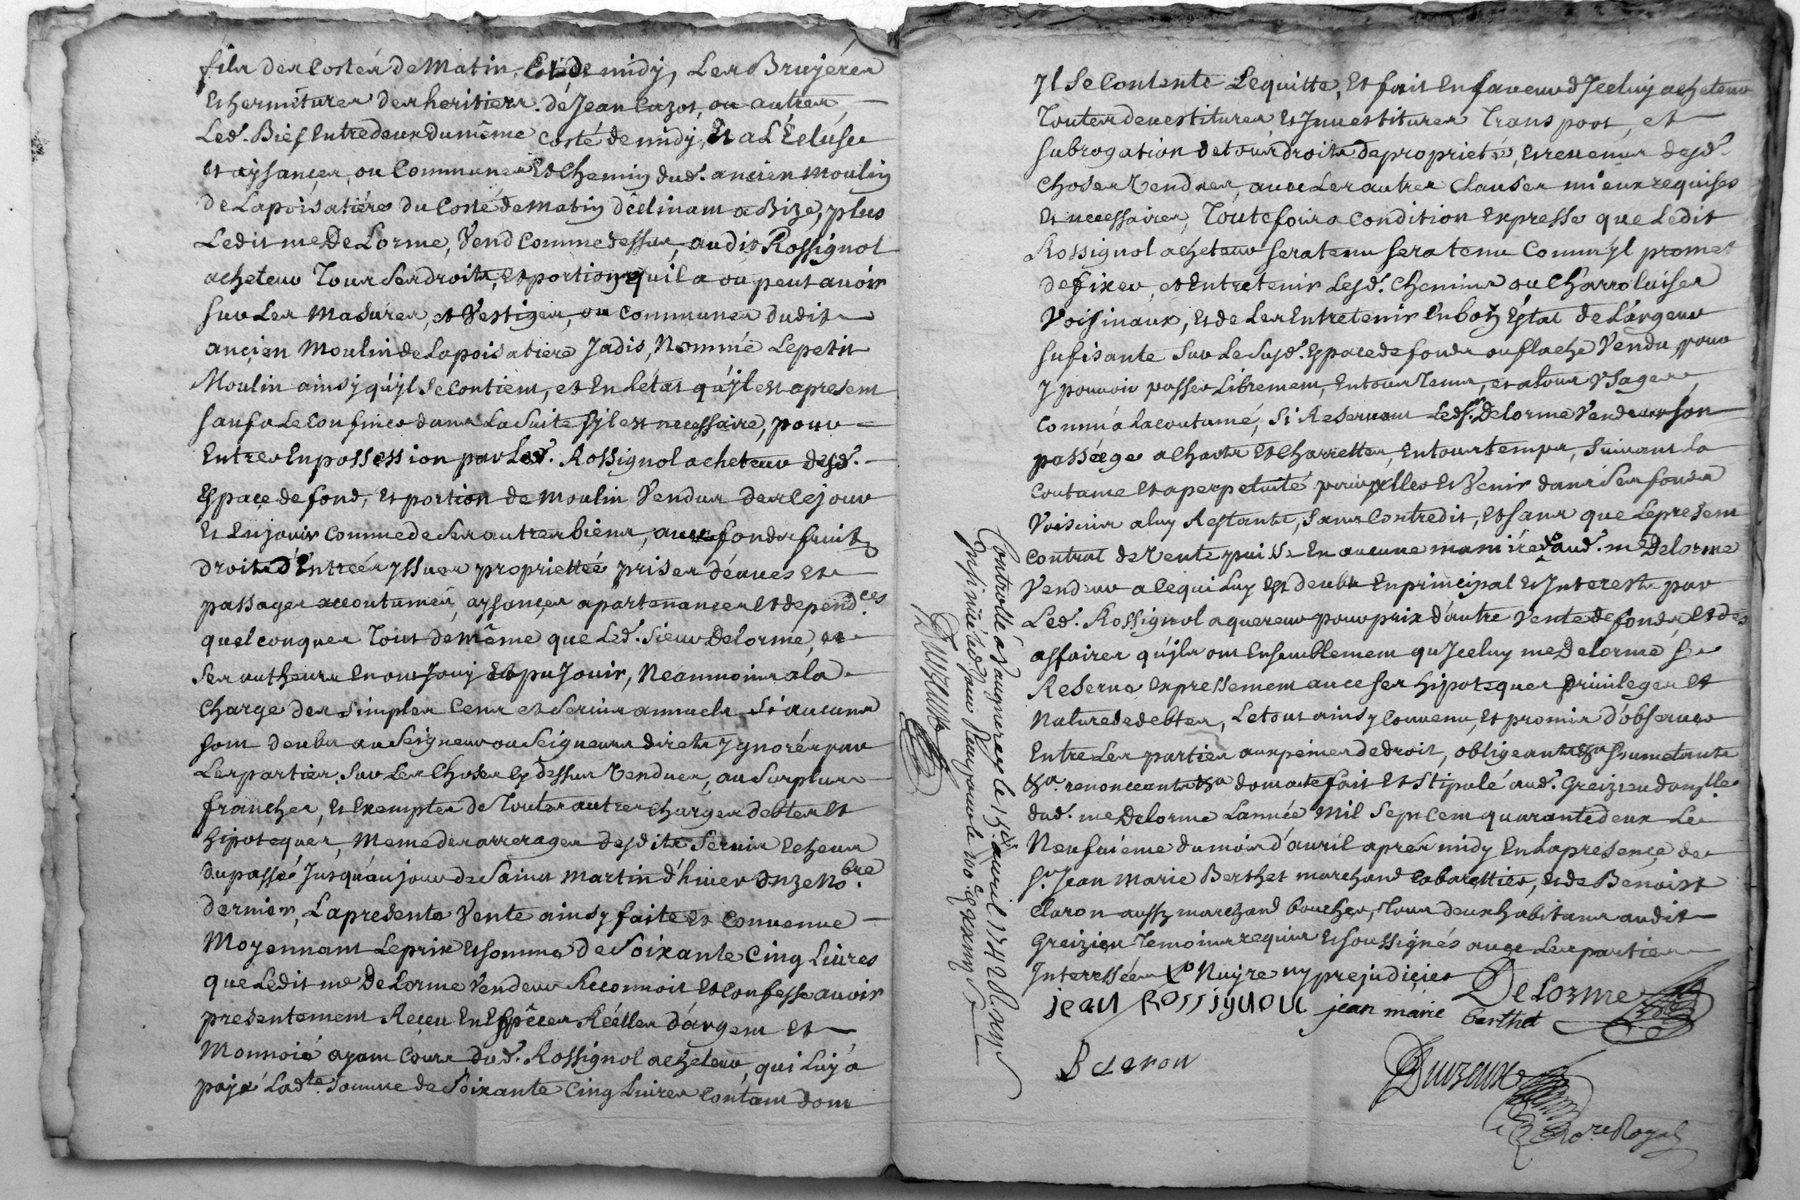 fils des Costés de Matin, Et de midy, Les Bruyéres
Et hermitures des heritiers de Jean Cazot, ou autres,
Led. Bief Entredeux du même Costé de midy, Et a L'Ecluse
Et aysances, ou Communes Et Chemin dud. ancien Moulin
De Lapoisatiéres du Costé de Matin déclinant a Bize, plus
Ledit me De Lorme, Vend Comme dessus, audit Rossignol
acheteur Tous Ses droits, et portions qu'il a ou peut avoir
Sur Les Masures, et Vestiges, ou Communes dudit
ancien Moulin de Lapoisatiere Jadis, Nommé Le petit
Moulin ainsy qu'yl Se Contient, et En Létat qu'yl est apresent
Sauf a Le Confiner dans La Suite S'yl est necessaire, pour
Entrer En possession par Led. Rossignol acheteur desd.
Espace de fond, Et portion de Moulin Vendus dez le jour
Et En jouir Comme de Ses autres biens, avec fonds fruits
droits d'Entrées yssues proprietté prises d'eaues Et
passages accoutumés, aysances apartenances Et depend.ces
quelconques Tout de même que Led. Sieur Delorme, et
Ses autheurs En ont Jouy Et pu Jouir, Neanmoins a la
Charge des Simples Cens et Servis annuels Si aucuns
Sont deubs au Seigneur ou Seigneurs directs ygnorés par
Les parties Sur Les Choses Cy dessus Vendues, au Surplus
franches, Et Exemptes de Toutes autres Charges debtes Et
hipoteques, Meme des arrerages desdits Servis Echeus
du passé Jusqu'au jour de Saint Martin d'hiver Onze No.bre
dernier, La presente Vente ainsy faite et Convenue
Moyennant Le prix Et Somme de Soixante Cinq Livres
que Ledit me De Lorme Vendeur Reconnoit Et Confesse avoir
presentement Receu En Espêces Réelles d'argent Et
Monnoié ayant Cours dud. Rossignol acheteur, qui Luy a
payé Lad.te Somme de Soixante Cinq Livres Contant dont
yl Se Contente Le quitte, Et fait En faveur d'Jceluy acheteur
Toutes devestitures Et Jnvestitures Transport, et
Subrogation de tous droits de proprieté, Et revenus desd.
Choses Vendues, avec Les autres Clauses mieux requises
Et necessaires, Toutefois a Condition Expresse que Ledit
Rossignol acheteur Sera tenu Sera tenu Comm'yl promet
de fixer, et Entretenir Lesd. Chemins ou Charroluises
Voisinaux, Et de Les Entretenir En bon Estat de Largeur
Sufisante Sur Le Susd. Espace de fonds ou flache Vendu pour
y pouvoir passer Librement, En tous Tems, et a tous Usages,
Comm'à la coutume, Si Reservant Led. Sr. Delorme Vendeur Son
passéage a Chars Et Charrettes, En tous temps, Suivant La
Coutume Et a perpetuité pour aller Et Venir dans Ses fonds
Voisins a luy Restants, Sans Contredit, Et Sans que Le present
Contrat de Vente puisse En aucune maniére aud. me Delorme
Vendeur a Ce qui Luy Est deub En principal Et Interest par
Led. Rossignol aquereur pour prix d'autre Vente de fonds Et des
affaires qu'jls ont Ensemblement qu'Jceluy me Delorme Se
Reserve Expressement avec Ses hipoteques privileges Et
Nature de debtes, Le tout ainsy Convenu, Et promis d'observer
Entre Les parties aux peines de droit, obligeants &a Soumetants
&a. renonceants &a dont acte fait Et Stipulé aud. Greizieu
dud. me Delorme L'année Mil Sept Cent quarante deux Le
Neufuiéme du mois d'avril apres midy En La presence de
Sr. Jean Marie Berthet marchand Cabarettier, Et de Benoist
Claron aussy marchand boucher, Tous deux habitans audit
Greizieu Temoins requis Et Soussignés avec Les parties
Interessées Nuire ny prejudicier
jean Rossignol jean marie berthet Delorme
B Claron
Duizeux
No.re Royal
Controllé à Vaugneray le 15e avril 1742 Reçu
Duizeux